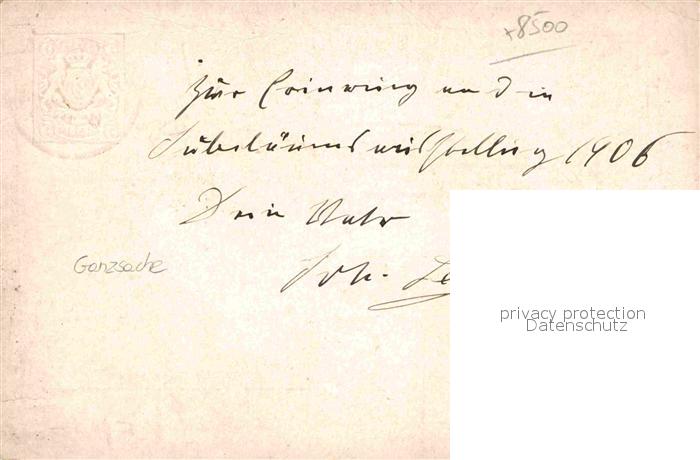 +8500
Zur Erinnerung an die
Jubiläumsausstellung 1906
Dein Vater
Joh.
Ganzsache
privacy protection
Datenschutz